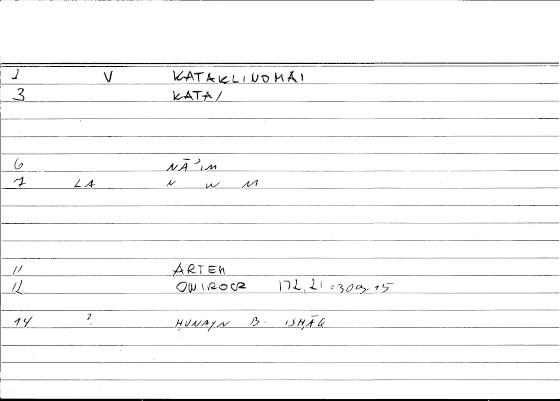 1 V KATAKLINOMAI
3 KATA/
6 NĀ'IM
7 LA N W M
11 ARTEM
12 ONIROCR 172,21 = 309.15
14 ? HUNAYN B. ISHĀQ